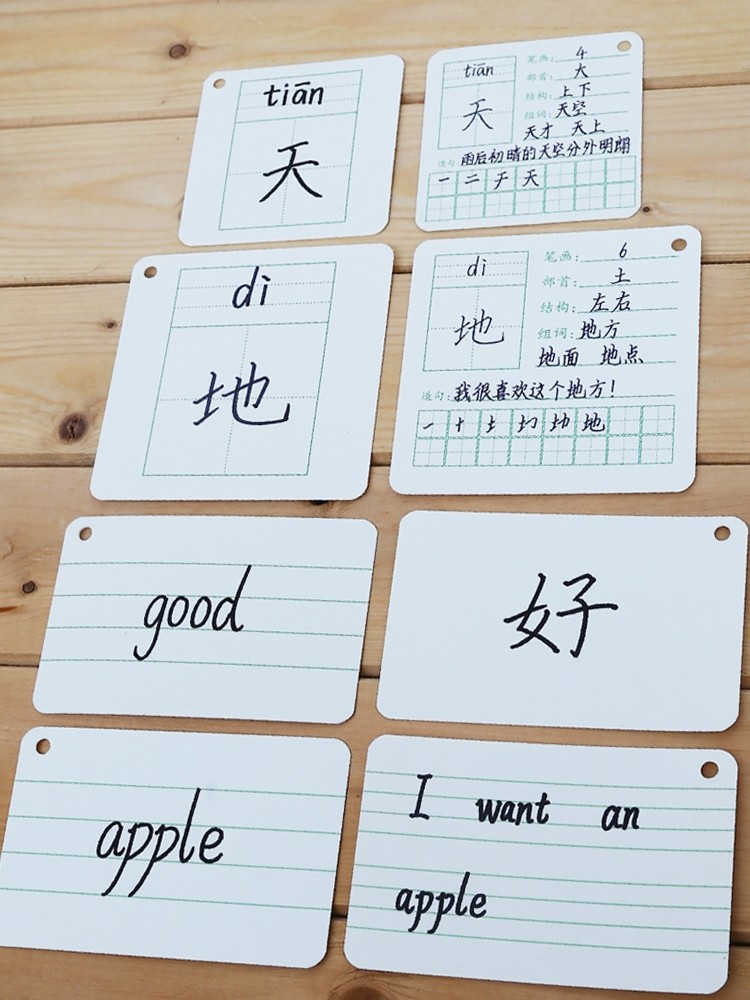 tiān
天
tiān
天
笔画: 4
部首: 大
结构: 上下
组词: 天空
天才 天上
造句: 雨后初晴的天空分外明朗
一 二 チ 天
dì
地
dì
地
笔画: 6
部首: 土
结构: 左右
组词: 地方
地面 地点
造句: 我很喜欢这个地方!
一 十 土 圵 圸 地
good
好
apple
I want an
apple